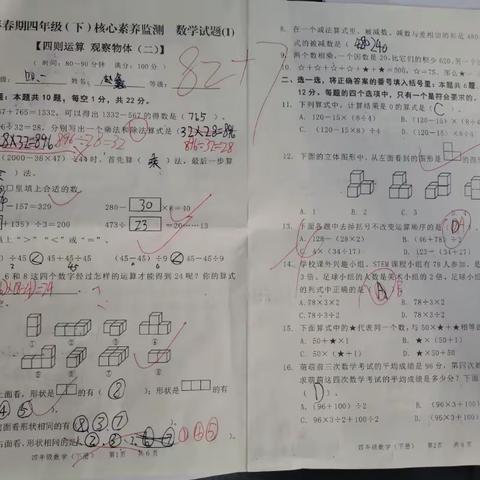 春期四年级(下)核心素养监测 数学试题(1)
【四则运算 观察物体(二)】
(时间:80~90分钟 满分:100分)
82+7
姓名:
本题共10题,每空1分,共22分。
67+765=1332,可以得出1332-567的得数是(765)。
96÷32=28,分别写出一个乘法和除法算式是(32×28=896
28×32=896 896÷28=32 896÷32=28
(2000-36×47)÷44时,首先算(乘)法,最后一步算
)法。
□里填上合适的数。
-157=329 280-30×6=10
+135)÷3=200 473÷23=20……13
填上“>”“<”或“=”。
)÷45 45÷45+45 (45-45)÷9 45-45÷9
6和8这四个数字经过怎样的运算才能得到24呢?你的算式
上面看,形状是 的有(②);形状是 的有
④⑤
面看形状相同的有(⑧③⑦)
右面看,形状相同的是
四年级数学(下册) 第1页 共6页
8. 在一个减法算式里,被减数、减数与差相加的和是480
式的被减数是(240
9. 两个数相乘,一个因数是20,比它们的积少620,另一个因
10. ☆+☆+☆+☆+☆+★+★=500,☆=75,那么★=
二、选一选,将正确答案的番号填入括号里:本题共6题,
12分。每题的四个选项中,只有一个是符合要求的。
11. 下列算式中,计算结果是0的算式是(C)。
A. (120-15×8)÷4 B. (120-15)×(8÷4)
C. 120-15×(8÷4) D. (120-15)×8÷4
12. 下面的立体图形中,从左面看到的图形是
A. 1 B. 2 C. 3 D. 4
13. 下面各题中去掉括号不改变运算顺序的是(D)
A. 128-(28×2) B. (46+78)÷2
C. 4×(34÷17) D. 123-(34+27)
14. 学校课外兴趣小组,STEM课程小组有78人参加,是
3倍。足球小组的人数是美术小组的2倍,足球小组
的列式中正确的是(A)
A.78×3×2 B.78÷3×2
C.78÷3÷2 D.78×3÷2
15. 下面算式中的★代表同一个数,与50×★+★相等
A. 50+★×1 B. ★×(50+1)
C. 50×(★+1) D. ★×50+1
16. 萌萌前三次数学考试的平均成绩是96分,第四次
求萌萌这四次数学考试的平均成绩是多少分?下面
(D)。
A. (96+100)÷2 B. (96+100)
C. 96×3÷2+100÷2 D. (96×3+100)÷
四年级数学(下册) 第2页 共6页